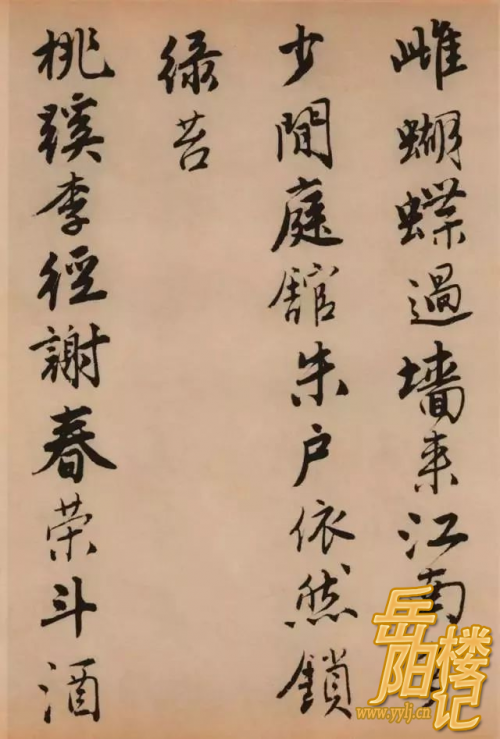 雌蝴蝶過墻来江南
少閒庭舘朱户依然鎖
緑苔
桃蹊李徑謝春荣斗酒
岳阳楼记
www.yylj.cn